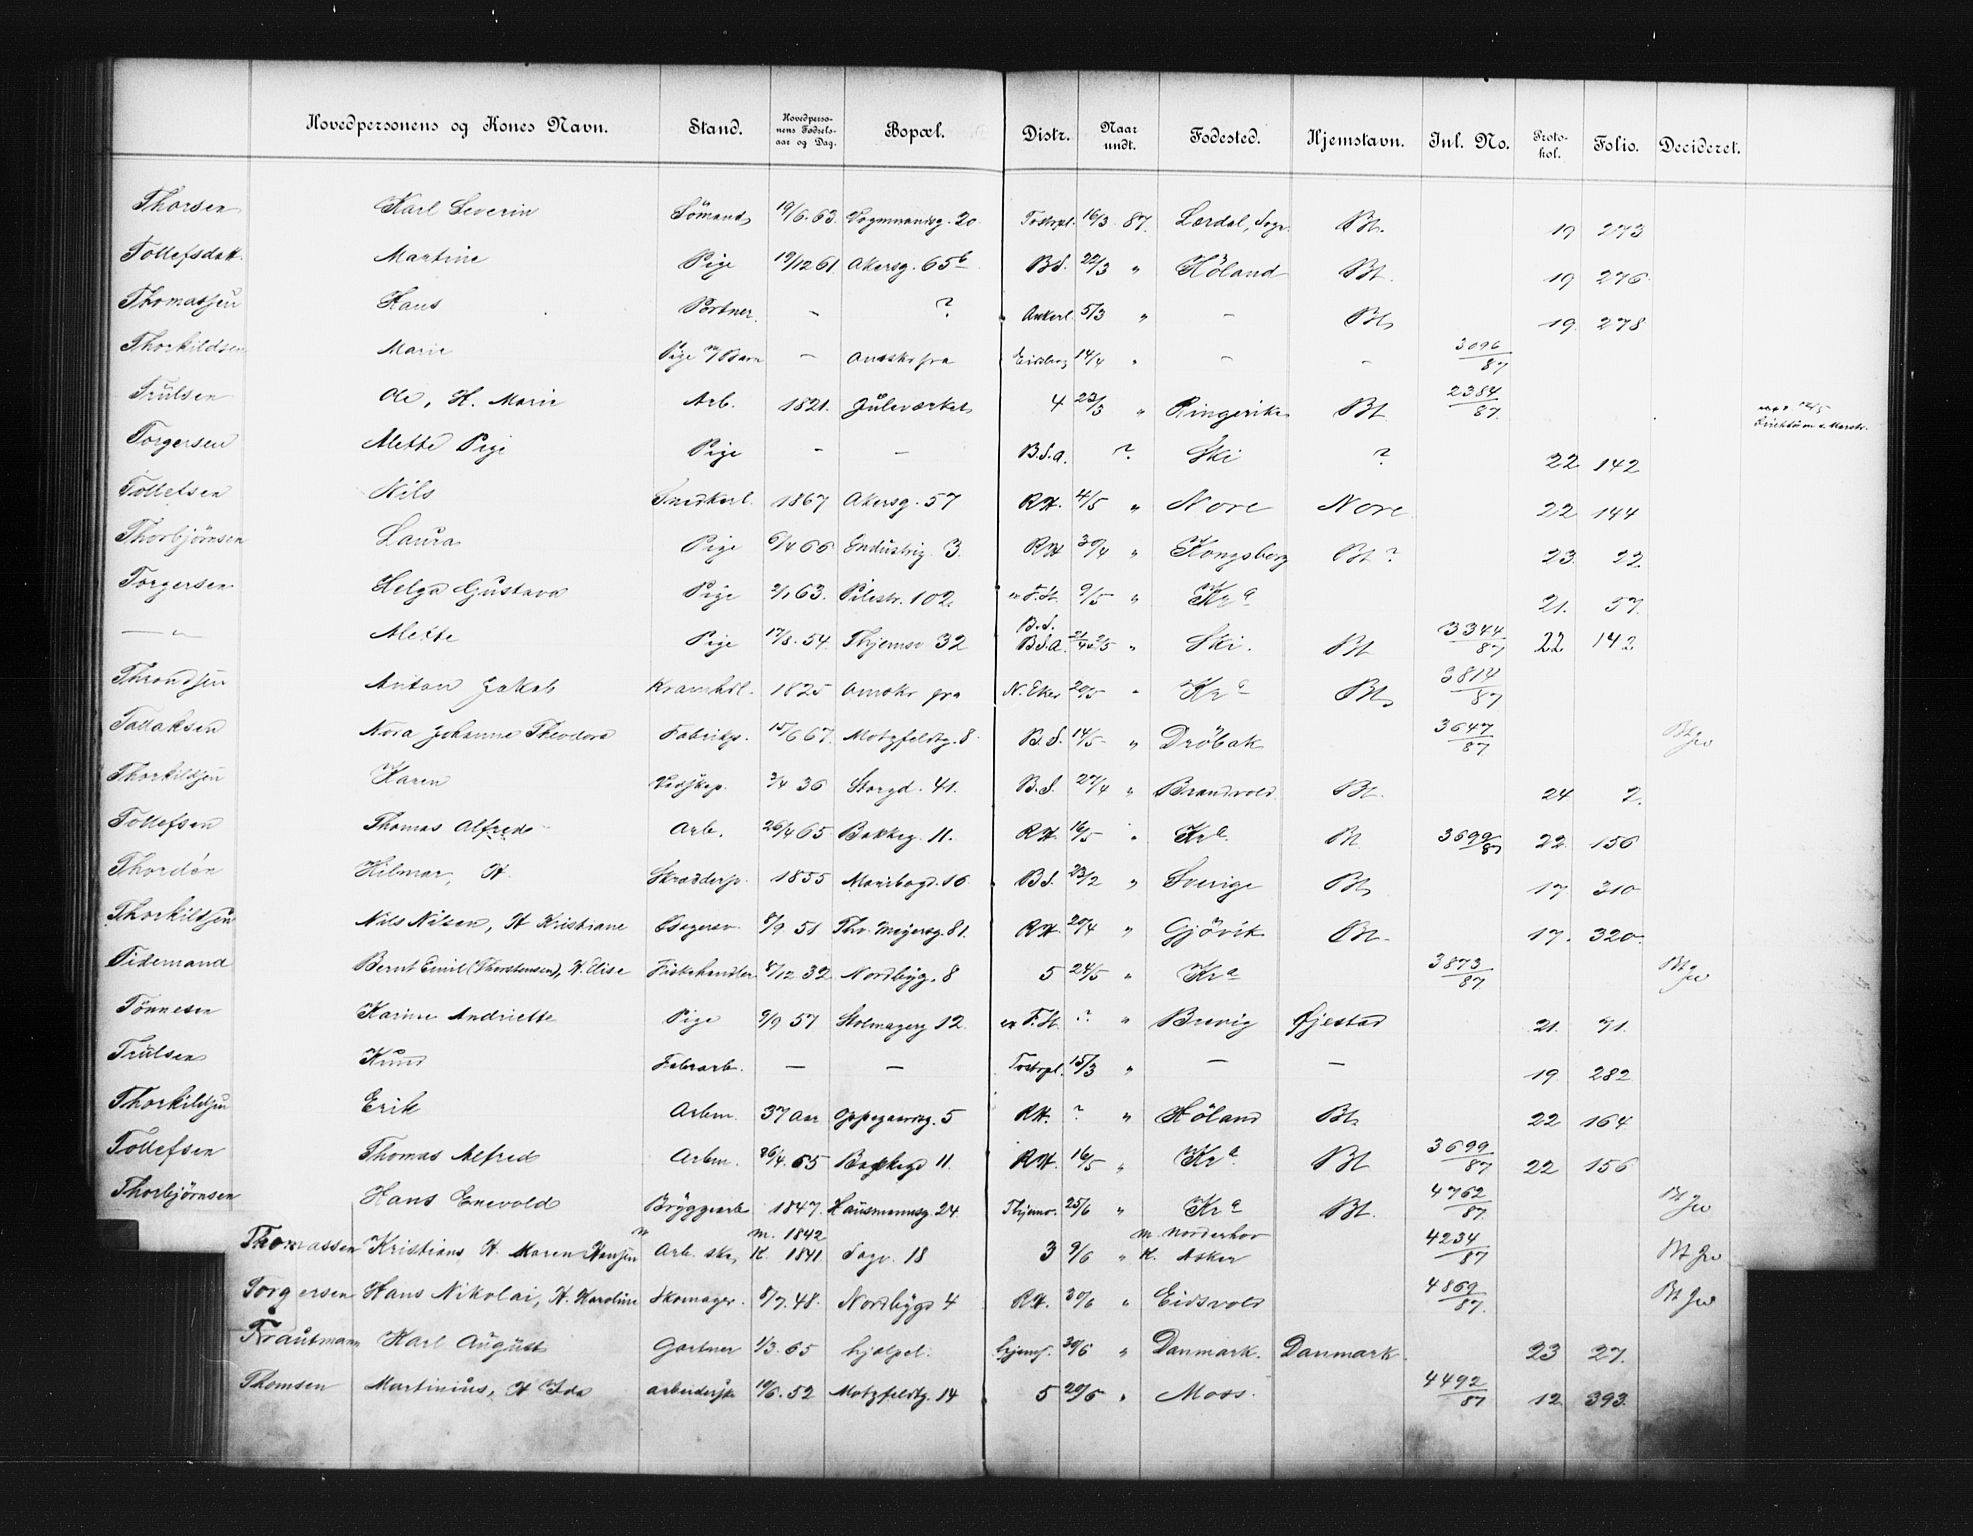 Hovedpersonens og Kones Navn. Stand. Hovedperso-nens Fødsels-aar og Dag. Bopæl. Distr. Naar undt. Fødested. Hjemstavn. Inl. No. Proto-kol. Folio. Decideret.
Thorsen Karl Severin Sömand 19/6 63. Vognmandsg. 20 Tostrpl. 16/3 87. Lærdal, Sogn Bt. 19 273
Tollefsdatt. Martine Pige 19/12 61 Akersg. 65b BS. 22/3 " Höland Bt. 19 276
Thomassen Hans Portner. - ? Ankerl. 5/3 " - Bt. 19 278
Thorkildsen Marie Pige m/Barn - Anskr fra Eidsberg 14/4 " - - 3096/87
Trulsen Ole, H. Marie Arb. 1821. Juleværket 4 23/3 " Ringerike Bt 2384/87
Torgersen Alette Pige Pige - - B.S.a. ? Ski ? 22 142
Tollefsen Nils Snedkerl. 1867 Akersg. 57 RH. 4/5 " Nore Nore 22 144
Thorbjørnsen Laura Pige 6/4 66 Industrig. 3. RH 30/4 " Kongsberg Bt ? 23. 22.
Torgersen Helga Gustava Pige 2/1 63. Pilestr. 102. F.St. 9/5 " Kra 21. 57.
— " — Alette Pige 17/8. 54. Thjemsv 32 B.S. B.S.a. 21/4 2/5 " Ski. Bt 3344/87 22 142
Throndsen Anton Jakob Kramhdl. 1825 Anskr fra N. Eker 20/5 " Kra Bt 3814/87
Tallaksen Nora Johanne Theodora Fabrikp. 15/6 67. Motzfeldtg. 8 B.S. 14/5 " Dröbak 3647/87 Bt Jw
Thorkildsen Karen Vadskep. 3/4 36 Storgd. 41. B.S. 27/4 " Brandvold Bt. 24 2.
Tollefsen Thomas Alfred Arb. 26/4 65 Bakkeg. 11. RH. 16/5 " Kra. Bt 3699/87 22 156
Thordén Hilmar, H. Skræddersv. 1855 Maribogd. 16 BS. 23/2 " Sverige Bt 17 310
Thorkildsen Nils Nilsen, H Kristiane Bagersv. 8/9 51 Thv. Meyersg. 81. RH. 20/4 " Gjövik Bt. 17. 320.
Tidemand Bernt Emil (Thorstensen), H. Elise Fiskehandler 8/12 32 Nordbyg. 8 5 24/5 " Kra 3873/87 Bt Jw
Tönnesen Karine Andriette Pige 9/9 57 Holmagerg 12. F.St. ? " Brevig Øjestad 21. 71.
Trulsen Knud Fabrarb. — — Tostrpl. 15/3 " — — 19 282
Thorkildsen Erik Arbm. 37 Aar Oppegaardsg. 5 RH. ? " Höland Bt 22 164
Tollefsen Thomas Alfred Arbm. 26/4. 65 Bakkegd 11. RH. 16/5 " Kra. Bt 3699/87 22 156
Thorbjørnsen Hans Enevold Bryggearb 1847. Hausmannsg. 24. Thjemv. 25/6 " Kra Bt. 4762/87 Bt Jw
Thomassen Kristians H. Maren Hansen m Arb. ske, m. 1842 K. 1841 Sagv. 18 3 9/6 " m. Norderhov K. Asker 4234/87 Bt Jw
Torgersen Hans Nikolai, H. Karoline Skomager. 8/7. 48. Nordbygd 4 RH. 30/6 " Eidsvold 4869/87. Bt Jw
Trautmann Karl August Gartner 1/3. 65 hjælpel. hjemf. 30/6 " Danmark. Danmark. 23 27.
Thomsen Martinius, H Ida arbeidersk 10/6. 52 Motzfeldtg. 14 5 20/6 " Moss. 4492/87 12 393.